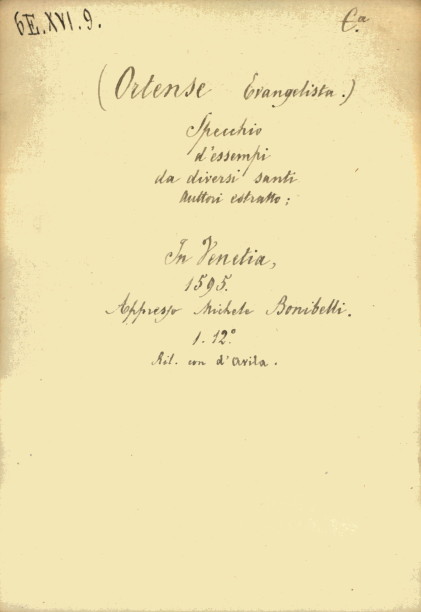 6E.XVI.9.
C.a
(Ortense Evangelista.)
Specchio
d'essempi
da diversi santi
Auttori estratto;
In Venetia,
1595.
Appresso Michele Bonibelli.
1. 12.°
Ril. con d'Avila.